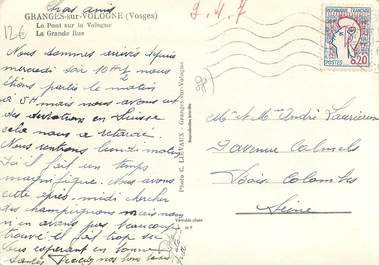 Chers amis
GRANGES-sur-VOLOGNE (Vosges)
Le Pont sur la Vologne
La Grande Rue
12€
9.4.7
Nous sommes arrivés depuis
mercredi soir 10H nous
étions partis le matin
à 5H mais nous avons eu
des déviations en Suisse
cela nous a retardé.
Nous rentrons lundi matin
Ici il fait un temps
magnifique. Nous avons
cette après-midi chercher
des champignons mais nous
n'en avons pas beaucoup
trouvé il fait trop sec
espérant en bonne
santé
Photo C. LIEVAUX - Granges-sur-Vologne
Reproduction interdite
Véritable photo
POSTES
0,20
M. et Mme André
7 avenue
Bois Colombes
Seine